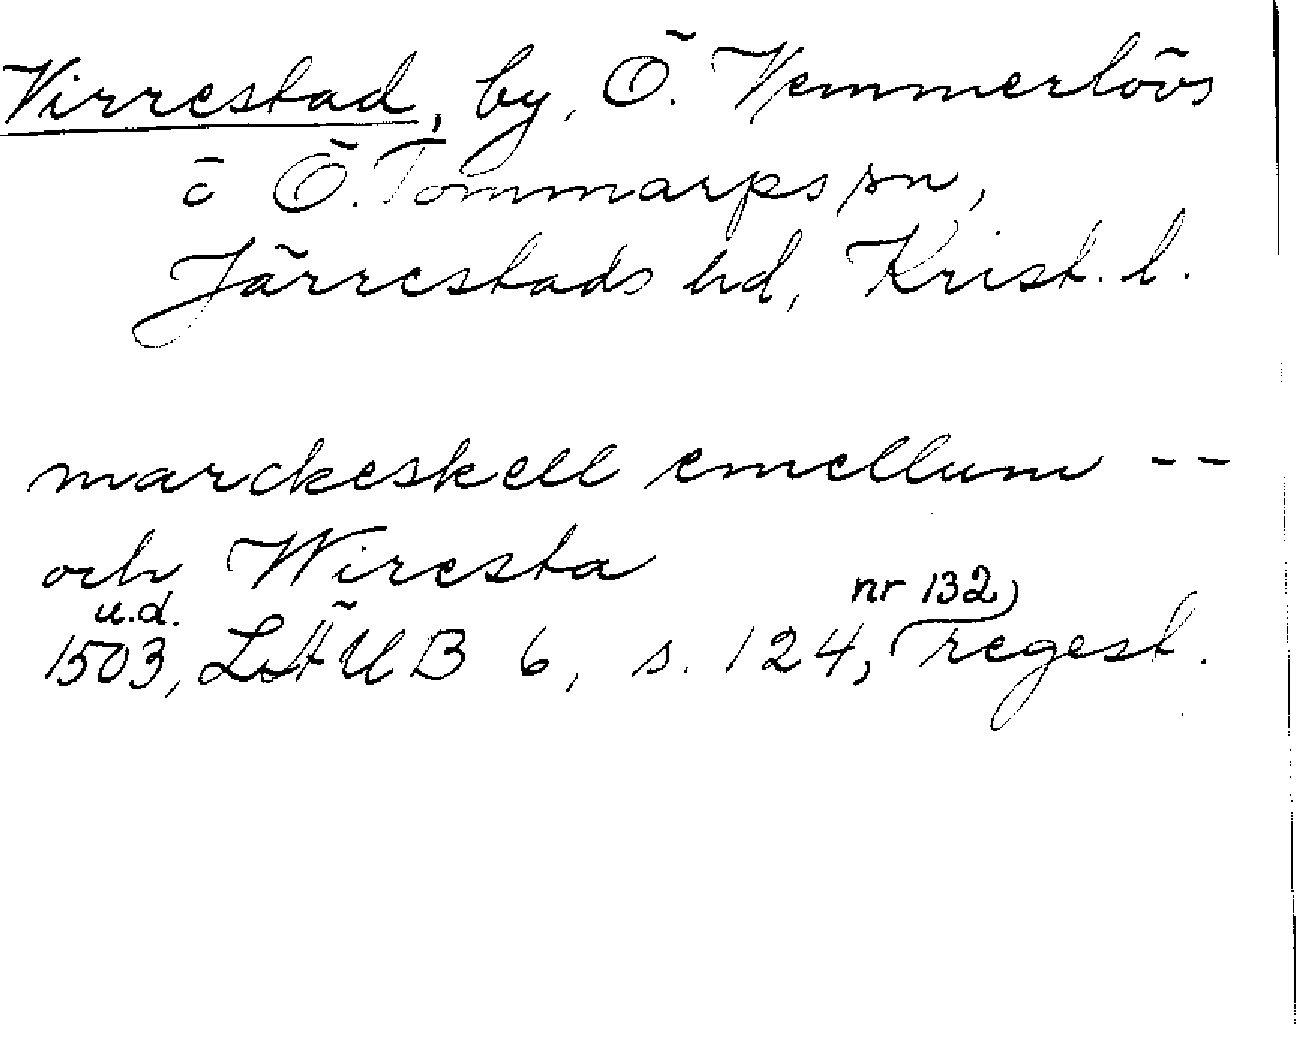 Virrestad, by, Ö. Vemmerlövs
o Ö. Tommarps sn,
Järrestads hd, Krist. l.
marckeskell emellum --
och Wiresta
u.d. nr 132,
1503, LÄUB 6, s. 124, regest.